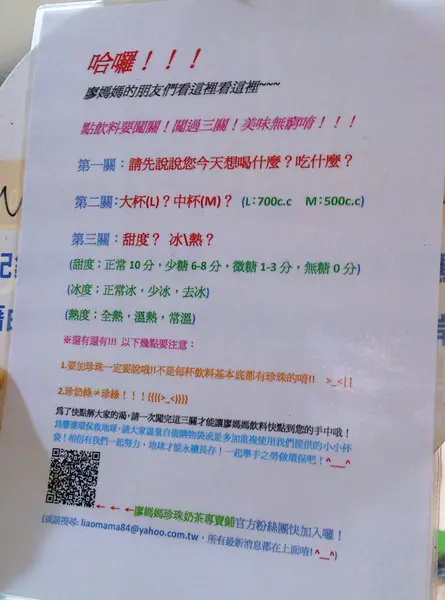 哈囉！！！
廖媽媽的朋友們看這裡看這裡~~~
點飲料要闖關！闖過三關！美味無窮唷！！！
第一關：請先說說您今天想喝什麼？吃什麼？
第二關：大杯(L)？中杯(M)？ (L：700c.c M：500c.c)
第三關：甜度？ 冰\熱？
(甜度；正常10分，少糖6-8分，微糖1-3分，無糖0分)
(冰度；正常冰，少冰，去冰)
(熱度；全熱，溫熱，常溫)
※還有還有!!! 以下幾點要注意：
1.要加珍珠一定要說哦!!不是每杯飲料基本底都有珍珠的唷!! >_<||
2.珍奶綠≠珍綠！！！((((>_<))))
為了快點解大家的渴，請一次闖完這三關才能讓廖媽媽飲料快點到您的手中哦！
為響應環保救地球，請大家盡量自備購物袋或是多加重複使用我們提供的小小杯
袋！相信有我們一起努力，地球才能永續長存！一起舉手之勞做環保吧！^__^
←←←廖媽媽珍珠奶茶專賣鋪官方粉絲團快加入囉！
(或請搜尋：liaomama84@yahoo.com.tw，所有最新消息都在上面唷!^__^)